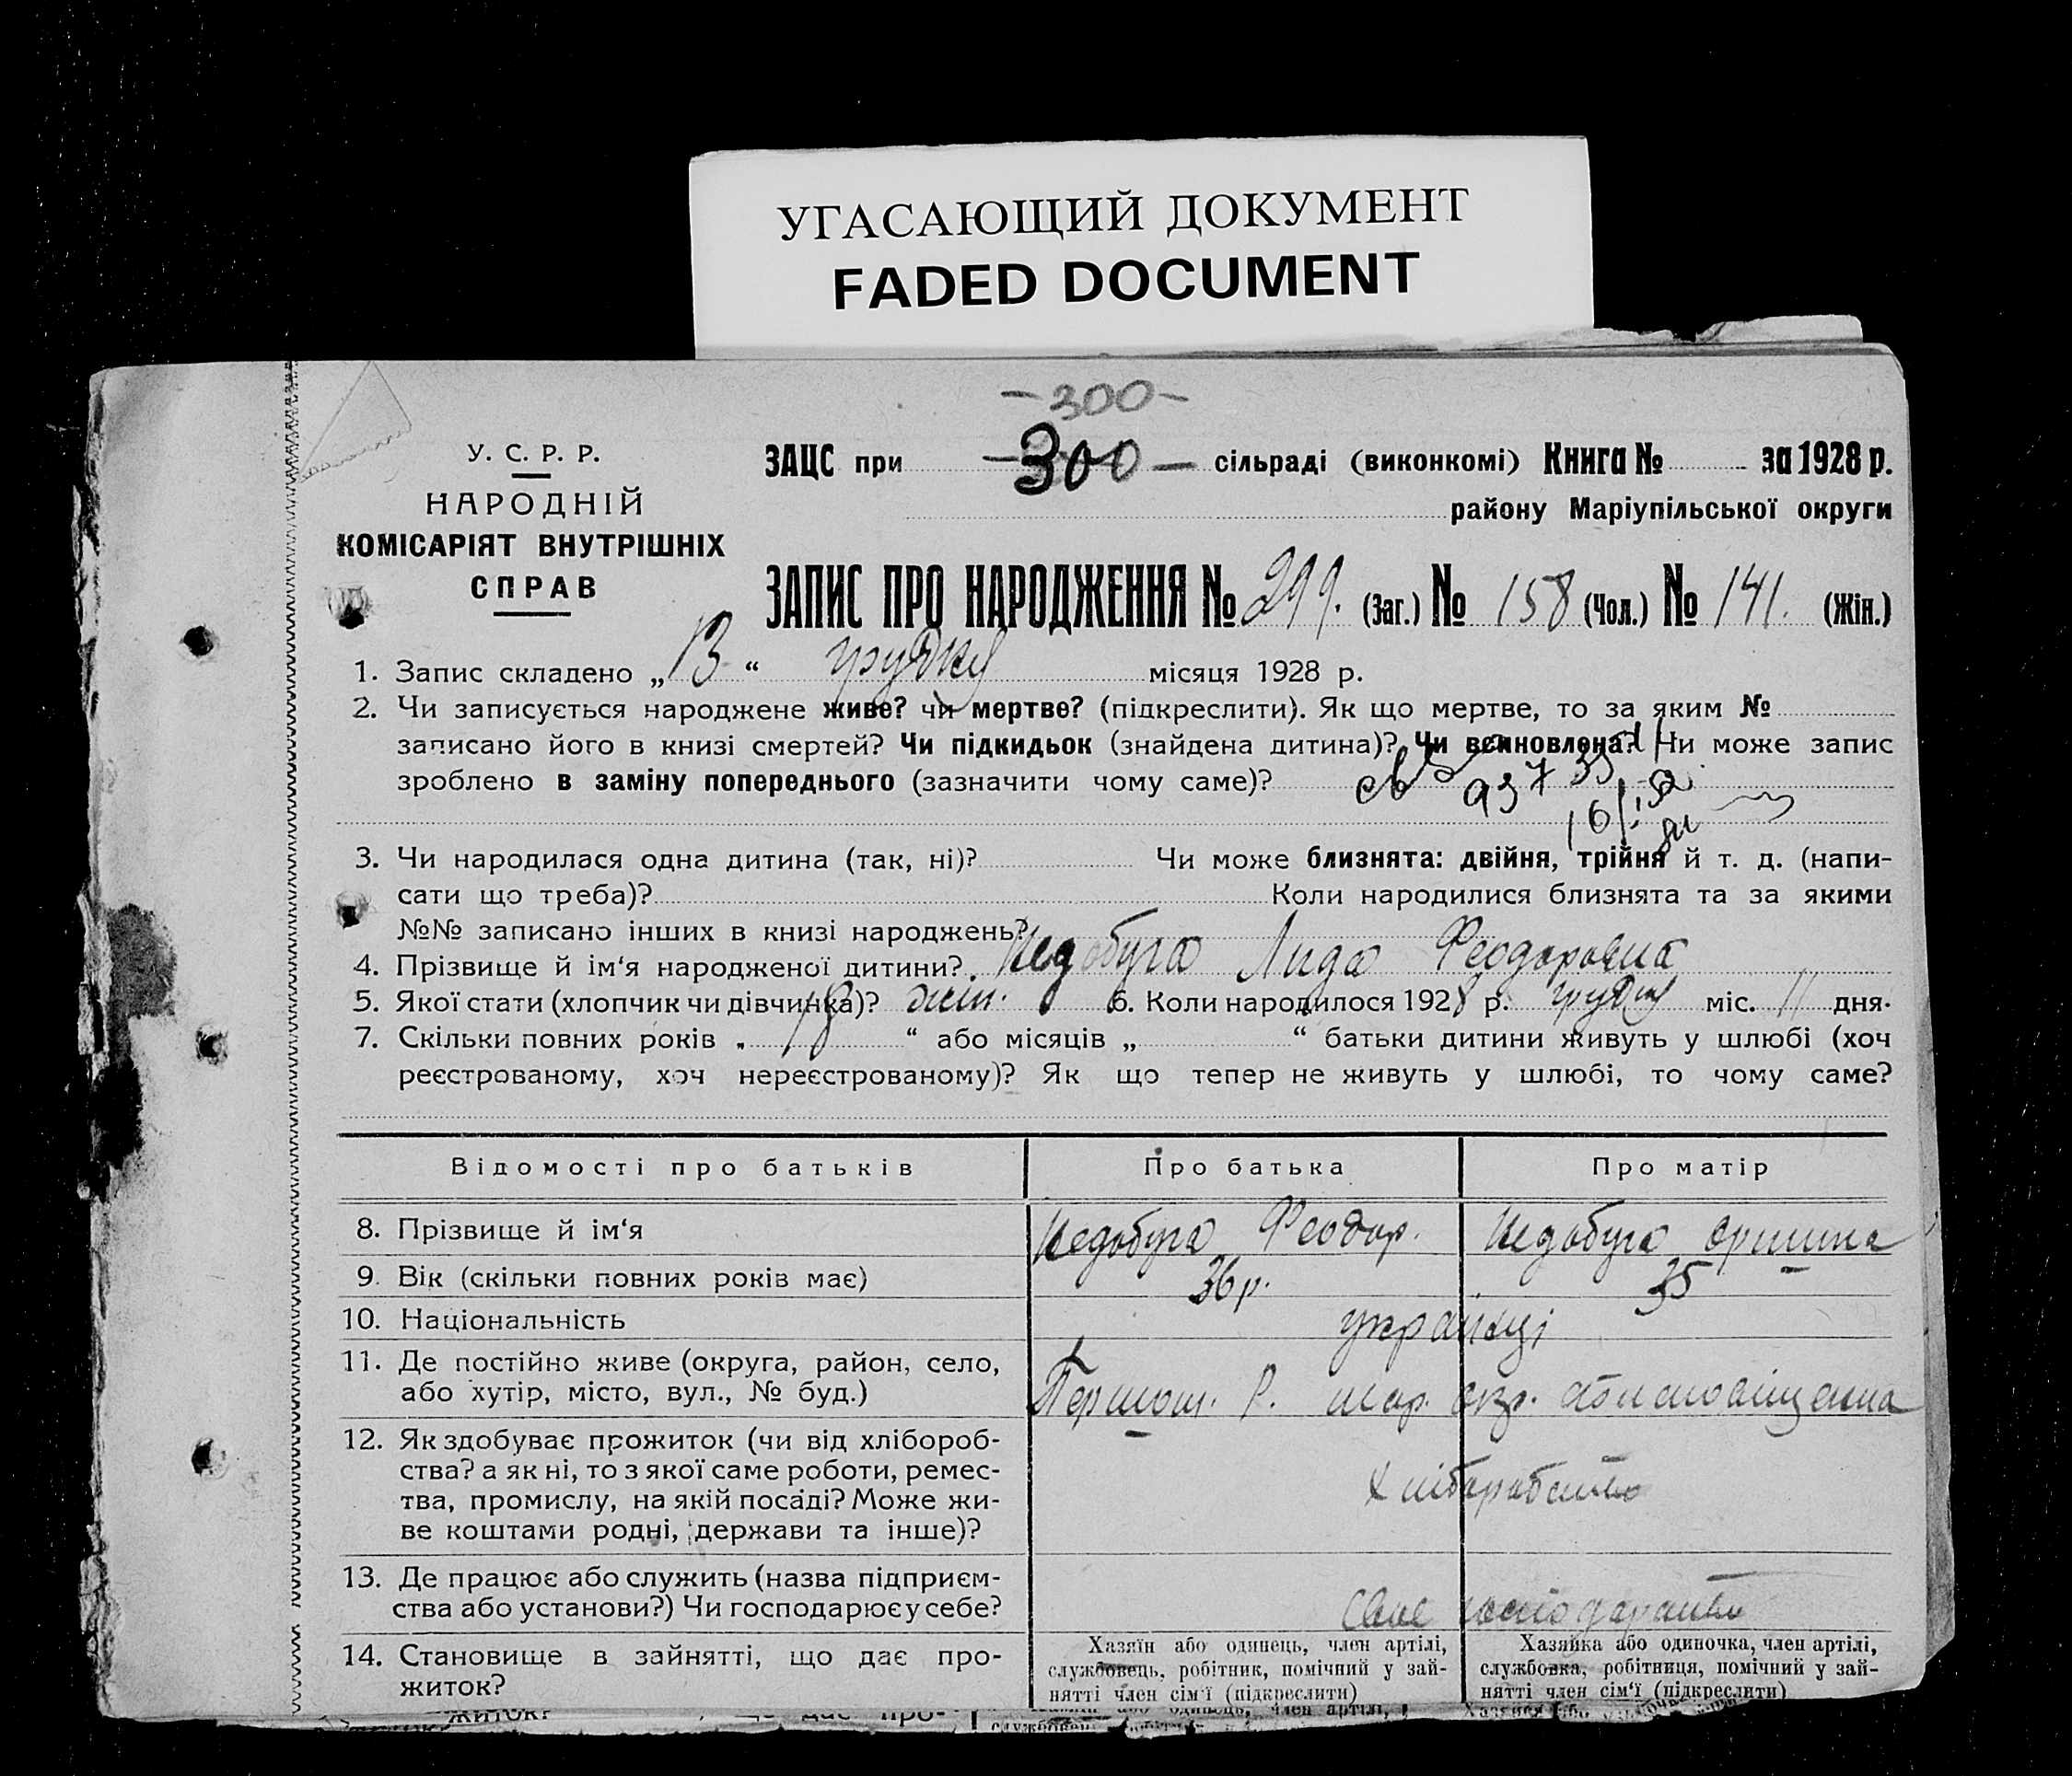 УГАСАЮЩИЙ ДОКУМЕНТ
FADED DOCUMENT
-300-
У. С. Р. Р.
НАРОДНІЙ
КОМІСАРІЯТ ВНУТРІШНІХ
СПРАВ
ЗАЦС при -300- сільраді (виконкомі) Книга № за 1928 р.
району Маріупільської округи
ЗАПИС ПРО НАРОДЖЕННЯ № 299. (Заг.) № 158 (Чол.) № 141. (Жін.)
1. Запис складено „13“ грудня місяця 1928 р.
2. Чи записується народжене живе? чи мертве? (підкреслити). Як що мертве, то за яким №
записано його в книзі смертей? Чи підкидьок (знайдена дитина)? Чи всиновлена? Чи може запис
зроблено в заміну попереднього (зазначити чому саме)?
3. Чи народилася одна дитина (так, ні)? Чи може близнята: двійня, трійня й т. д. (напи-
сати що треба)? Коли народилися близнята та за якими
№№ записано інших в книзі народжень?
4. Прізвище й ім‘я народженої дитини? Недобуга Лида Феодоровна
5. Якої стати (хлопчик чи дівчинка)? жін. 6. Коли народилося 1928 р. грудня міс. 11 дня.
7. Скільки повних років „18“ або місяців „ “ батьки дитини живуть у шлюбі (хоч
реєстрованому, хоч нереєстрованому)? Як що тепер не живуть у шлюбі, то чому саме?
Відомості про батьків Про батька Про матір
8. Прізвище й ім‘я Недобуга Феодор. Недобуга Оришка
9. Вік (скільки повних років має) 36 р. 35
10. Національність українці
11. Де постійно живе (округа, район, село,
або хутір, місто, вул., № буд.) Першот. Р. мар. окр.
12. Як здобуває прожиток (чи від хлібороб-
ства? а як ні, то з якої саме роботи, ремес-
тва, промислу, на якій посаді? Може жи-
ве коштами родні, держави та інше)? Хліборобство
13. Де працює або служить (назва підприєм-
ства або установи?) Чи господарює у себе? Своє господарство
14. Становище в зайнятті, що дає про-
житок?
Хазяїн або одинець, член артілі,
службовець, робітник, помічний у зай-
нятті член сім‘ї (підкреслити)
Хазяйка або одиночка, член артілі,
службовка, робітниця, помічний у зай-
нятті член сім‘ї (підкреслити)